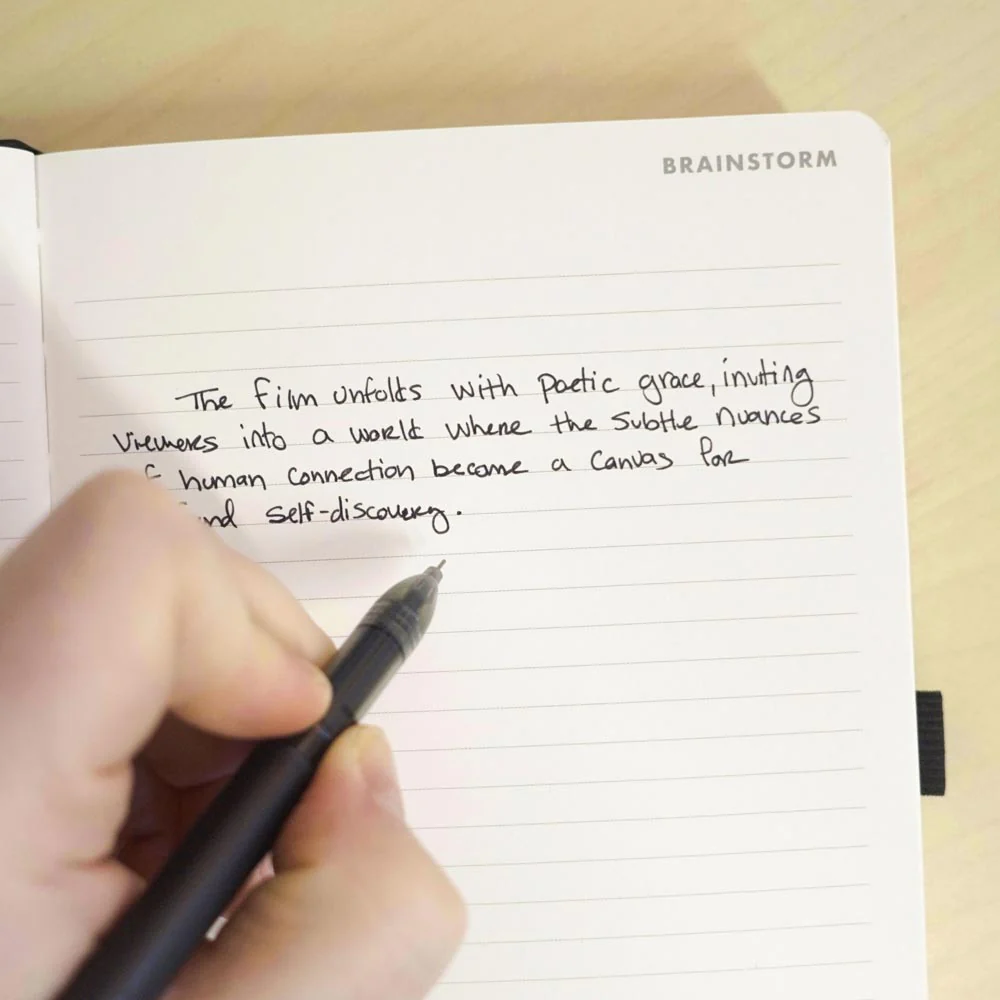 BRAINSTORM
The film unfolds with poetic grace, inviting
viewers into a world where the subtle nuances
human connection become a canvas for
self-discovery.